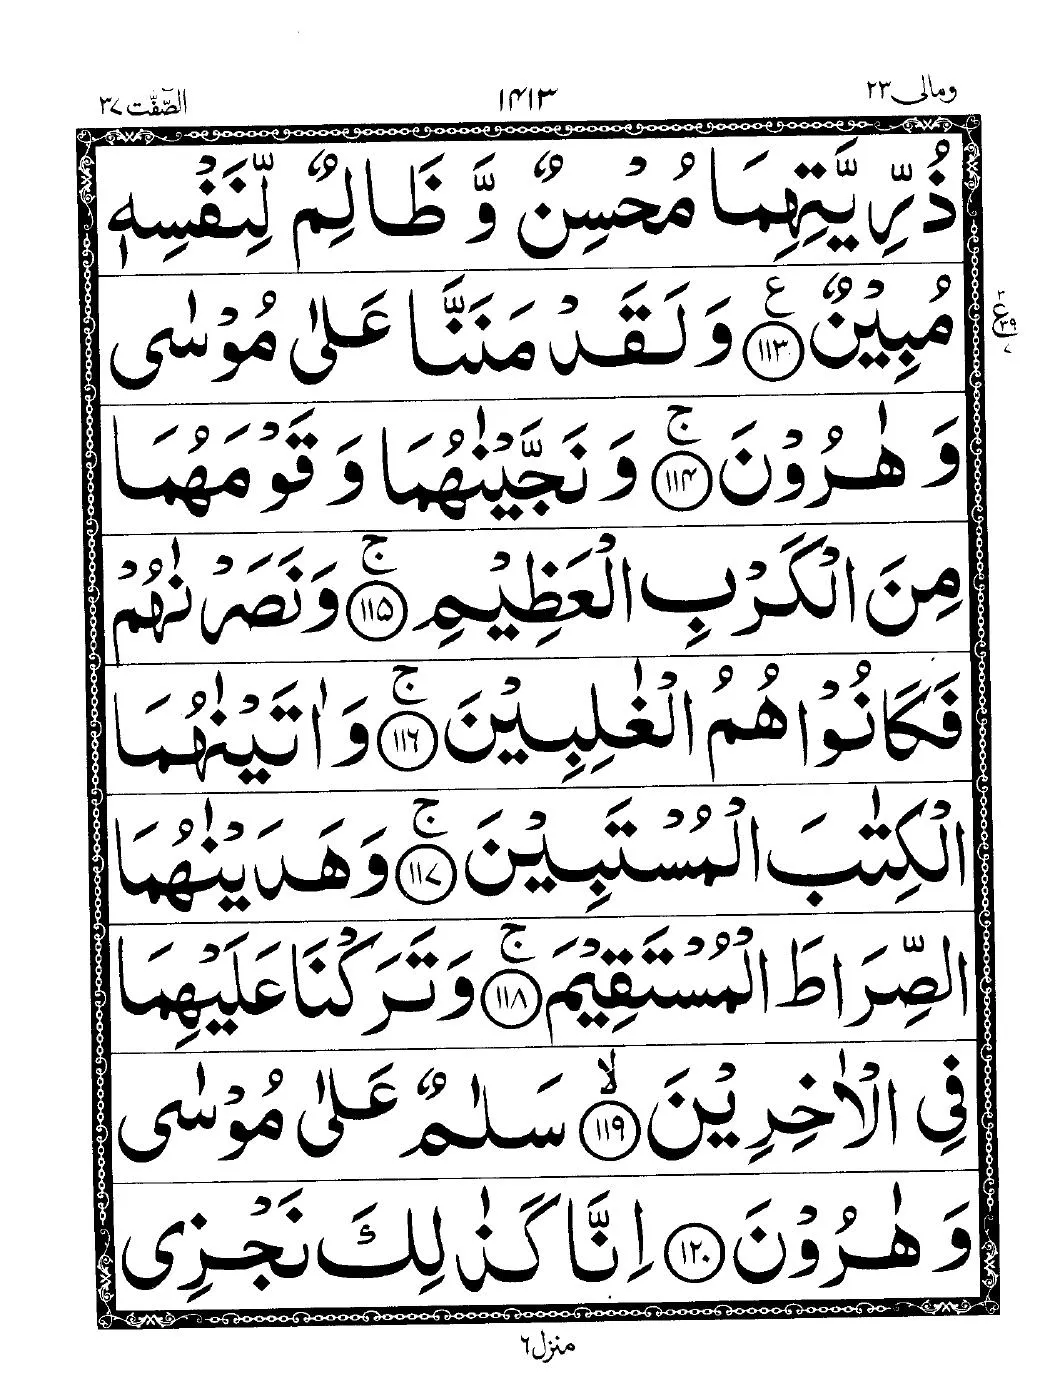 ومالی ۲۳ ۱۴۱۳ الصّٰٓفّٰت ۳۷
ذُرِّیَّتِهِمَا مُحْسِنٌ وَّ ظَالِمٌ لِّنَفْسِهٖ
مُبِیْنٌ ﴿۱۱۳﴾ ع وَ لَقَدْ مَنَنَّا عَلٰی مُوْسٰی
وَ هٰرُوْنَ ﴿۱۱۴﴾ ج وَ نَجَّیْنٰهُمَا وَ قَوْمَهُمَا
مِنَ الْكَرْبِ الْعَظِیْمِ ﴿۱۱۵﴾ ج وَ نَصَرْنٰهُمْ
فَكَانُوْا هُمُ الْغٰلِبِیْنَ ﴿۱۱۶﴾ ج وَ اٰتَیْنٰهُمَا
الْكِتٰبَ الْمُسْتَبِیْنَ ﴿۱۱۷﴾ ج وَ هَدَیْنٰهُمَا
الصِّرَاطَ الْمُسْتَقِیْمَ ﴿۱۱۸﴾ ج وَ تَرَكْنَا عَلَیْهِمَا
فِی الْاٰخِرِیْنَ ﴿۱۱۹﴾ لا سَلٰمٌ عَلٰی مُوْسٰی
وَ هٰرُوْنَ ﴿۱۲۰﴾ اِنَّا كَذٰلِكَ نَجْزِی
منزل ۶